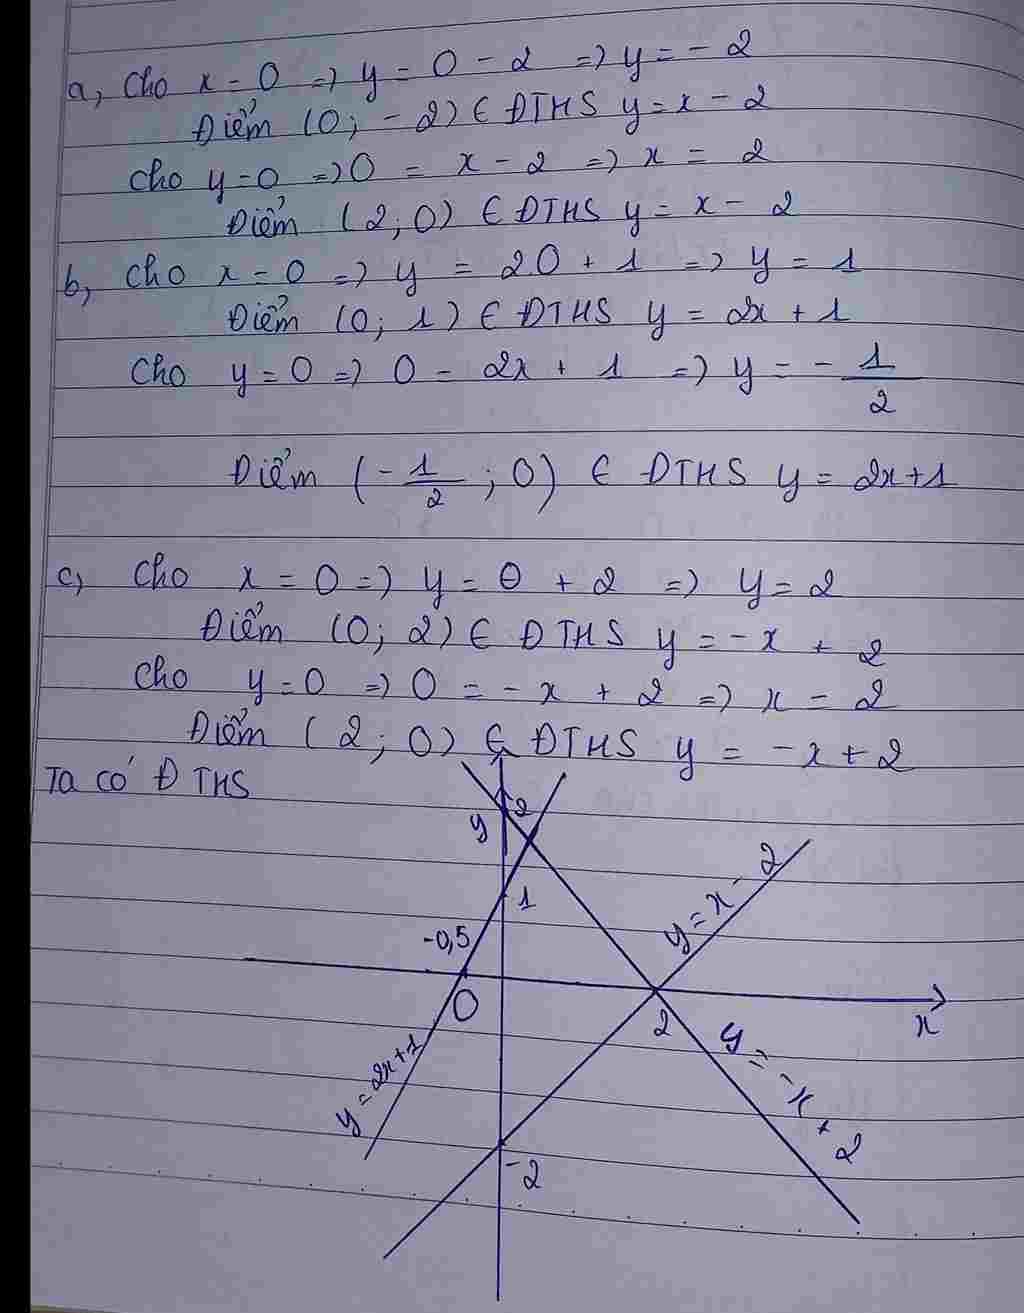 a, Cho x = 0 => y = 0 - 2 => y = - 2
Điểm (0; - 2) ∈ ĐTHS y = x - 2
Cho y = 0 => 0 = x - 2 => x = 2
Điểm (2; 0) ∈ ĐTHS y = x - 2
b, Cho x = 0 => y = 20 + 1 => y = 1
Điểm (0; 1) ∈ ĐTHS y = 2x + 1
Cho y = 0 => 0 = 2x + 1 => y = - 1/2
Điểm (- 1/2; 0) ∈ ĐTHS y = 2x + 1
c, Cho x = 0 => y = 0 + 2 => y = 2
Điểm (0; 2) ∈ ĐTHS y = -x + 2
Cho y = 0 => 0 = - x + 2 => x = 2
Điểm (2; 0) ∈ ĐTHS y = -x + 2
Ta có ĐTHS
y
2
1
y = x - 2
-0,5
O
2
x
y = 2x+1
y = -x + 2
-2